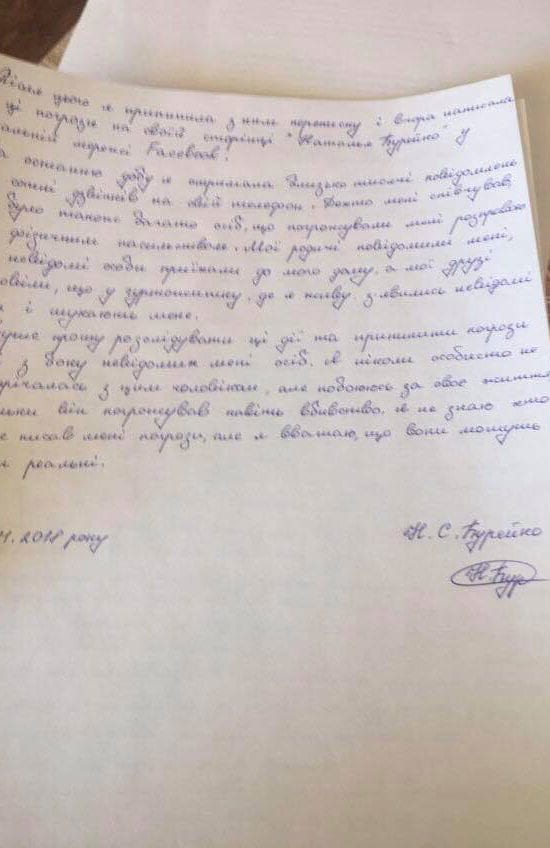 Після цього я припинила з ним переписку і вчора написала
ці погрози на своїй сторінці "Наталья Бурейко" у
альній мережі Facebook.
а останню добу я отримала близько тисячі повідомлень
сотні дзвінків на свій телефон. Дехто мені співчував,
було також багато осіб, що погрожували мені розправою
фізичним насильством. Мої родичі повідомили мені,
невідомі особи приїжали до мого дому, а мої друзі
овіли, що у гуртожитку, де я живу з'явились невідомі
і шукають мене.
уже прошу розслідувати ці дії та припинити погрози
з боку невідомих мені осіб. Я ніколи особисто не
річалась з цим чоловіком, але побоююсь за своє життя
ільки він погрожував навіть вбивством. Я не знаю хто
е писав мені погрози, але я вважаю, що вони можуть
и реальні.
2018 року
Н. С. Бурейко
Н.Бур